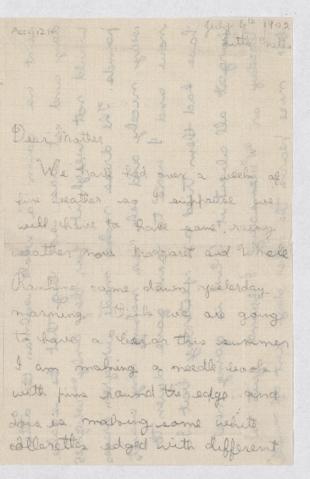 July 4th 1902
Dear Mother
We have had over a week of
fine weather so I suppose we
will have to have some rainy
weather now Margaret and Uncle
came down yesterday
morning. we are going
to have a this summer
I am making a needle book
with pins round the edge and
Lois is making some white
collarettes edged with different